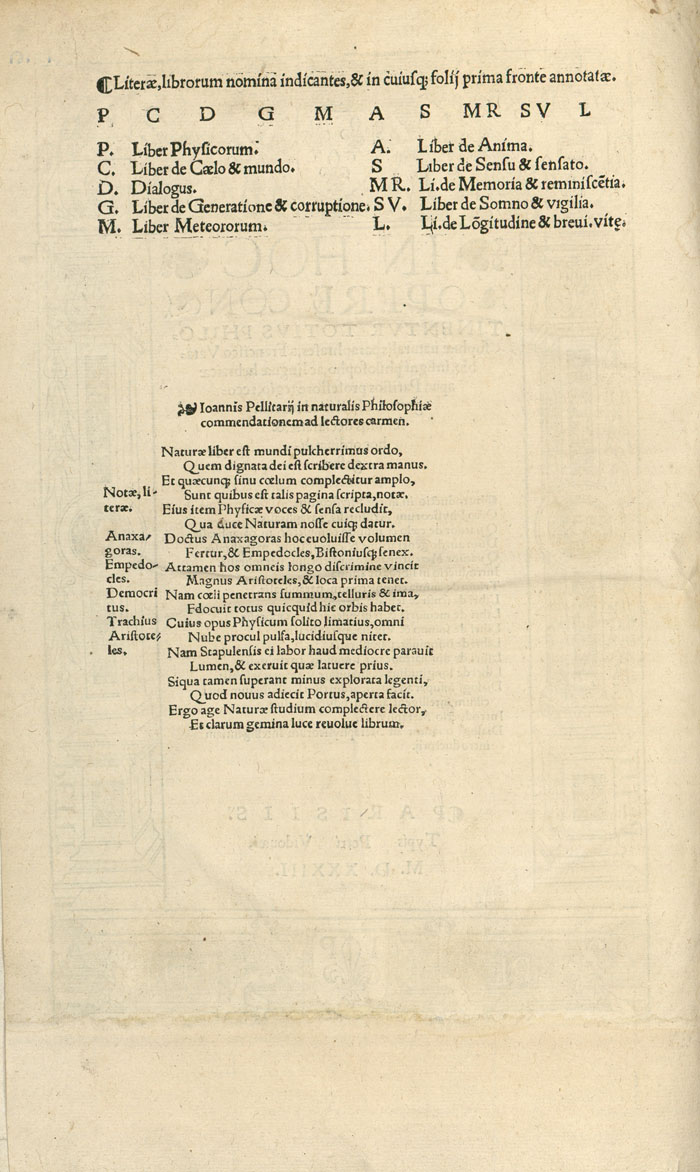 ¶ Literæ, librorum nominā indicantes, & in cuiusq; folij prima fronte annotatæ.
P C D G M A S MR SV L
P. Liber Physicorum. A. Liber de Anima.
C. Liber de Cælo & mundo. S Liber de Sensu & sensato.
D. Dialogus. MR. Li. de Memoria & reminiscētia.
G. Liber de Generatione & corruptione. SV. Liber de Somno & vigilia.
M. Liber Meteororum. L. Li. de Lōgitudine & breui. vitę.
Ioannis Pellitarij in naturalis Philosophiæ
commendationem ad lectores carmen.
Naturæ liber est mundi pulcherrimus ordo,
Quem dignata dei est scribere dextra manus.
Et quæcunq; sinu cœlum complectitur amplo,
Notæ, li- Sunt quibus est talis pagina scripta, notæ.
teræ. Eius item Physicæ voces & sensa recludit,
Qua duce Naturam nosse cuiq; datur.
Anaxa- Doctus Anaxagoras hoc euoluisse volumen
goras. Fertur, & Empedocles, Bistoniusq; senex.
Empedo- Attamen hos omneis longo discrimine vincit
cles. Magnus Aristoteles, & loca prima tenet.
Democri Nam cœli penetrans summum, telluris & ima,
tus. Edocuit totus quicquid hic orbis habet.
Trachius Cuius opus Physicum solito limatius, omni
Aristote- Nube procul pulsa, lucidiusque nitet.
les. Nam Stapulensis ei labor haud mediocre parauit
Lumen, & exeruit quæ latuere prius.
Siqua tamen superant minus explorata legenti,
Quod nouus adiecit Portus, aperta facit.
Ergo age Naturæ studium complectere lector,
Et clarum gemina luce reuolue librum.